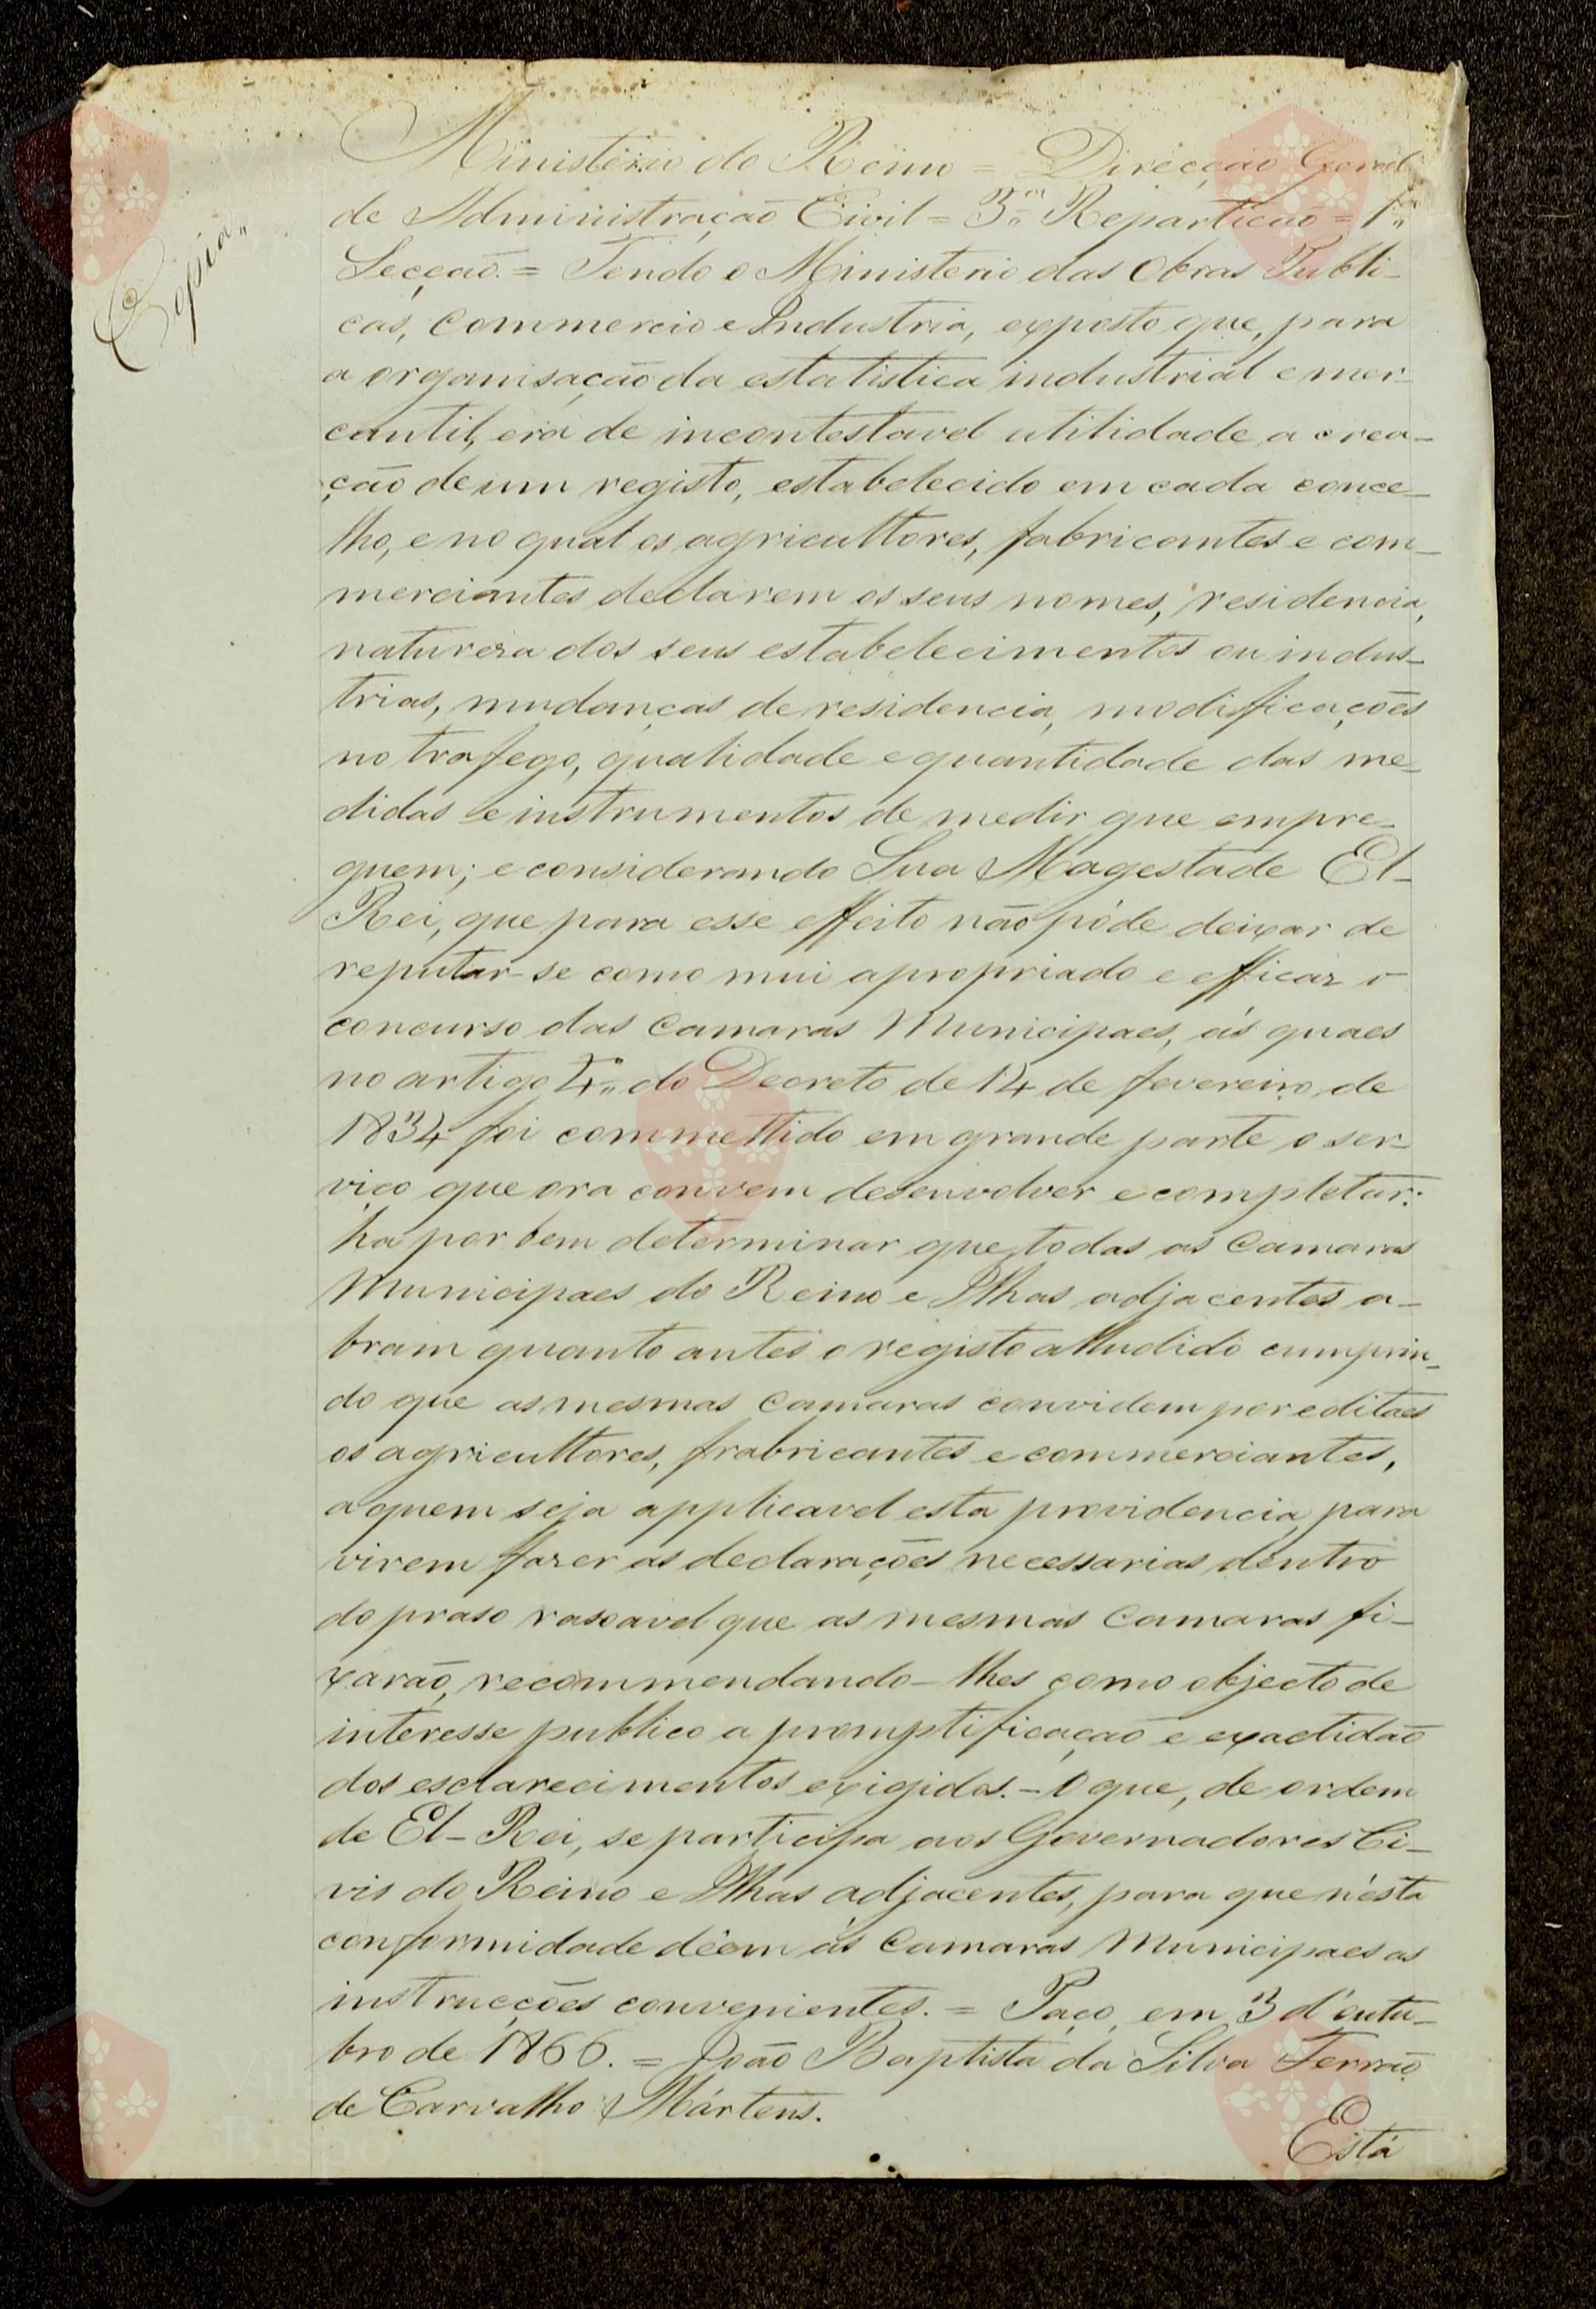 Copia"
Ministerio do Reino = Direcção Geral
de Administração Civil = 3.ª Repartição = 1.ª
Secção. = Tendo o Ministerio das Obras Publi-
cas, Commercio e Industria, exposto que, para
a organisação da estatistica industrial e mer-
cantil, era de incontestavel utilidade a crea-
ção de um registo, estabelecido em cada conce-
lho, e no qual os agricultores, fabricantes e com-
merciantes declarem os seus nomes, residencia,
natureza dos seus estabelecimentos ou indus-
trias, mudanças de residencia, modificações
no trafego, qualidade e quantidade das me-
didas e instrumentos de medir que empre-
guem; e considerando Sua Magestade El-
Rei, que para esse effeito não póde deixar de
reputar-se como mui apropriado e efficaz o
concurso das Camaras Municipaes, ás quaes
no artigo 4.º do Decreto de 14 de fevereiro de
1834 foi commettido em grande parte o ser-
viço que ora convem desenvolver e completar:
ha por bem determinar que todas as Camaras
Municipaes do Reino e Ilhas adjacentes a-
bram quanto antes o registo alludido cumprin-
do que as mesmas Camaras convidem por editaes
os agricultores, frabricantes e commerciantes,
a quem seja applicavel esta providencia, para
virem fazer as declarações necessarias dentro
do praso rasoavel que as mesmas Camaras fi-
xarão, recommendando-lhes como objecto de
interesse publico a promptificação e exactidão
dos esclarecimentos exigidos. - O que, de ordem
de El-Rei, se participa aos Governadores Ci-
vis do Reino e Ilhas adjacentes, para que n'esta
conformidade dêem ás Camaras Municipaes as
instrucções convenientes. = Paço, em 3 d'outu-
bro de 1866. = João Baptista da Silva Ferrão
de Carvalho Mártens.
Está
Bispo